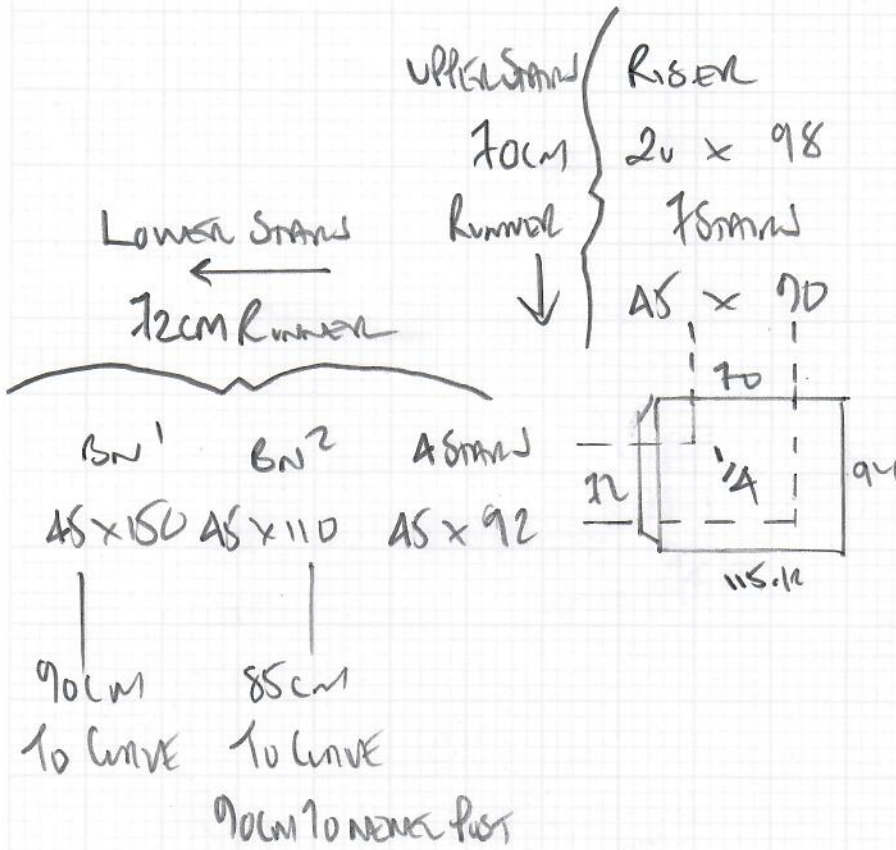 UPPER STAIRS
70CM
RUNNER
RISER
20 x 98
7 STAIRS
45 x 90
LOWER STAIRS
72CM RUNNER
BN1 BN2 4 STAIRS
45x150 45x110 45x92
70
72
1/4
90CM
TO CURVE
85CM
TO CURVE
90CM TO NEWEL POST